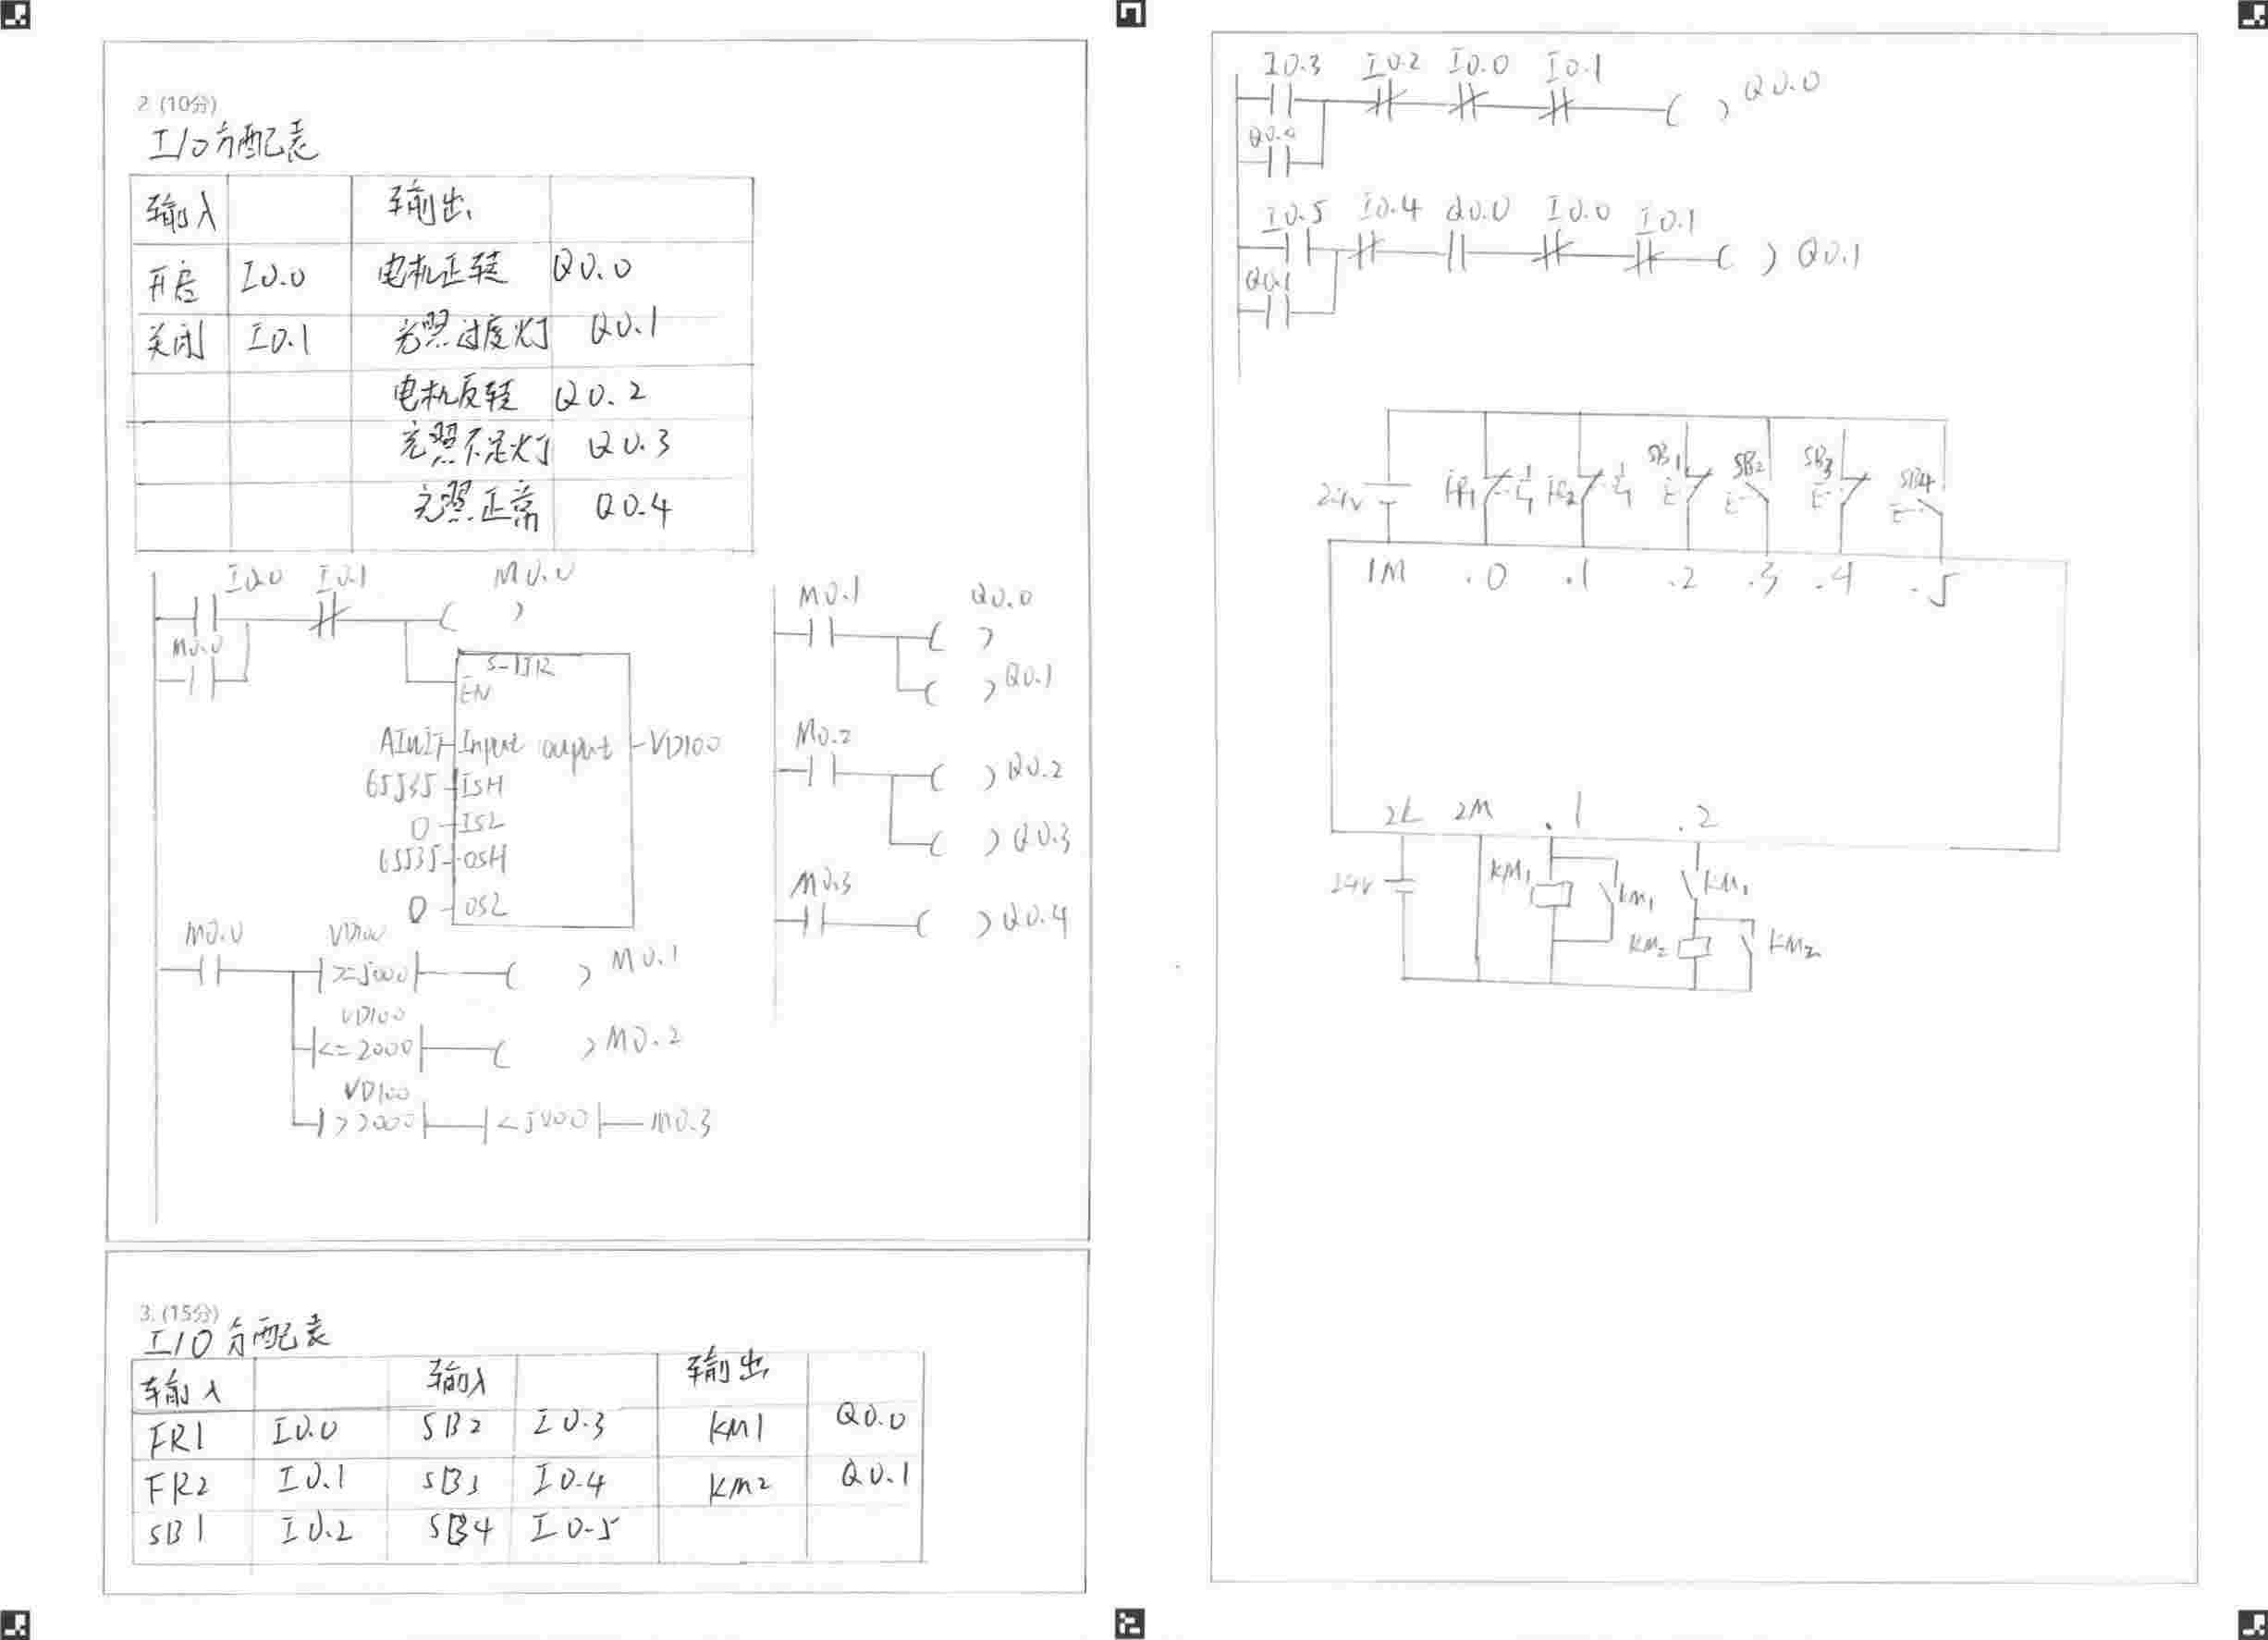 2. (10分)
I/O分配表
输入 输出
开启 I0.0 电机正转 Q0.0
关闭 I0.1 光照过度灯 Q0.1
电机反转 Q0.2
光照不足灯 Q0.3
光照正常 Q0.4
I0.0 I0.1 M0.0
M0.0
EN
Input ouput VD100
65535 ISH
0 ISL
65535 OSH
0 OSL
M0.0 VD100
>=5000 M0.1
VD100
<=2000 M0.2
VD100
>2000 <5000 M0.3
M0.1 Q0.0
Q0.1
M0.2 Q0.2
Q0.3
M0.3 Q0.4
3. (15分)
I/O分配表
输入 输入 输出
FR1 I0.0 SB2 I0.3 KM1 Q0.0
FR2 I0.1 SB3 I0.4 KM2 Q0.1
SB1 I0.2 SB4 I0.5
I0.3 I0.2 I0.0 I0.1 Q0.0
Q0.0
I0.5 I0.4 Q0.0 I0.0 I0.1 Q0.1
Q0.1
24V FR1 FR2 SB1 SB2 SB3 SB4
1M .0 .1 .2 .3 .4 .5
2L 2M .1 .2
24V KM1 KM1 KM1
KM2 KM2